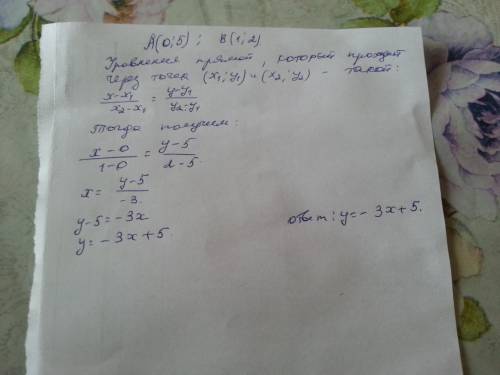 A(0;5); B(1;2)
Уравнения прямой, который проходит
через точек (x₁;y₁) и (x₂;y₂) - такой:
x-x₁/x₂-x₁ = y-y₁/y₂-y₁
Тогда получим:
x-0/1-0 = y-5/2-5
x = y-5/-3.
y-5=-3x
y=-3x+5.
ответ: y=-3x+5.